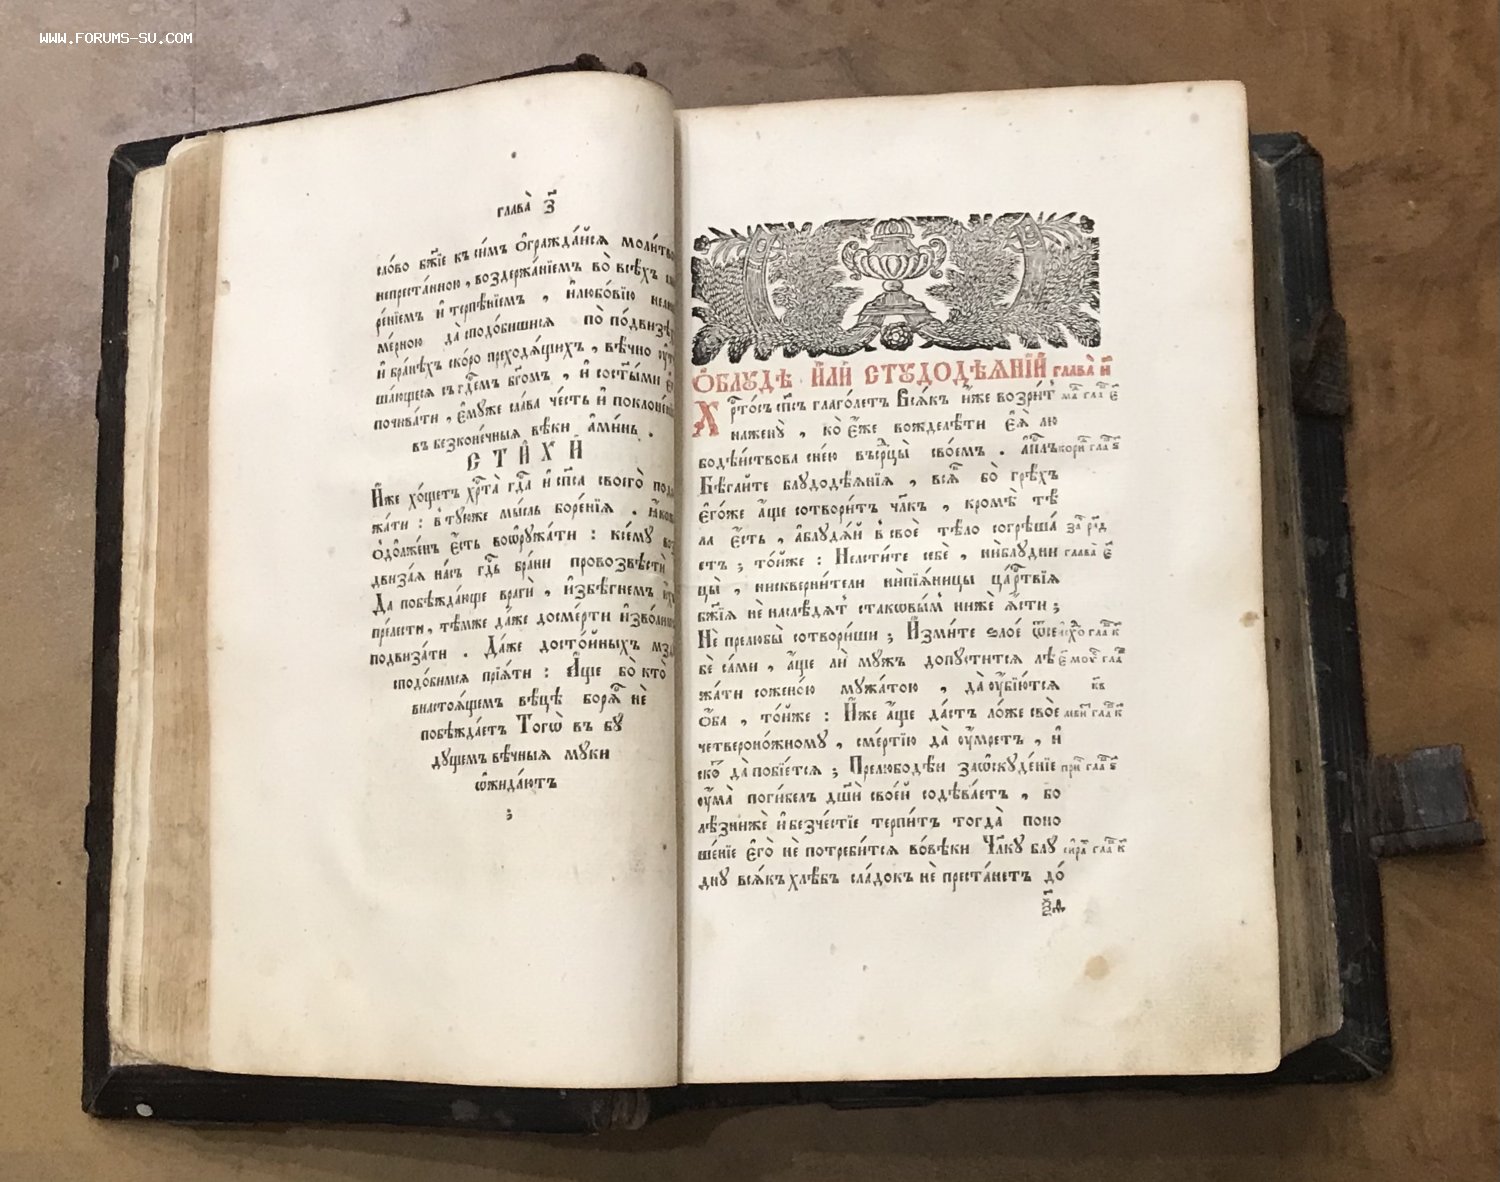 WWW.FORUMS-SU.COM
глава̀ з҃
сло́во бж҃їе къ си́мъ ѻ҆гражда́йсѧ моли́тво
непреста́нною , воздержа́нїемъ во̀ всѣ́хъ
ре́нїемъ и҆ терпѣ́нїемъ , и҆любо́вїю
мѣ́рною да̀ сподо́бишисѧ по̀ по́двизѣ
и҆ бра́нѣхъ ско́ро преходѧ́щихъ , вѣ́чно
ша́ющесѧ съ гдⷭ҇емъ бг҃омъ , и҆ со ст҃ы́ми
почива́ти , є҆му́же сла́ва че́сть и҆ поклоне́нї
въ безконе́чныѧ вѣ́ки а҆ми́нь .
СТИХЍ
И҆́же хо́щетъ хрⷭ҇та̀ гдⷭ҇а и҆ сп҃са своего̀ по
жа́ти : втꙋ́юже мы́сль боре́нїѧ .
ѻ҆до́лженъ є҆́сть воѡрꙋжа́ти : ксемꙋ̀
двиза́ѧ на́съ гдⷭ҇ь бра́ни провозвѣстѝ
Да побѣжда́юще врагѝ , и҆збѣ́гнемъ
пре́лести , тѣ́мже да́же досме́рти и҆зво́
подвиза́ти . Да́же досто́йныхъ мз
сподо́бимсѧ прїѧ́ти : А҆́ще бо̀ кто̀
внастоѧ́щемъ вѣ́цѣ борѧ́ не
побѣжда́етъ Тогѡ̀ въ бꙋ
дꙋщемъ вѣ́чныѧ мꙋки
ѡ҆жида́ютъ
;
Ѻ҆БЛꙊДѢ И҆ЛЍ СТꙊДОДѢѦНЇИ глава̀ и҃
Хрⷭ҇то́съ сп҃съ глаго́летъ Всѧ́къ и҆́же возри́т маⷴ глаⷡ є҃
наженꙋ̀ , ко̀ є҆́же вожделѣ́ти є҆ѧ̀ лю
бодѣ́йствова сне́ю въ срⷣцы̀ свое́мъ . а҆пⷭ҇лъ кориⷩ глаⷡ ѕ҃
Бѣ́гайте блꙋдодѣѧ́нїѧ , всѧ́ бо̀ грѣ́хъ
є҆го́же а҆́ще сотвори́тъ чл҃къ , кромѣ̀ тѣ́
ла є҆́сть , а҆блꙋдѧ́й в своѐ тѣ́ло согрѣша́
етъ ; то́йже : Нелсти́те себѐ , ниблꙋдни глава̀ є҃
цы̀ , нискверни́тели нипїѧ́ницы ца́рⷭ҇твїѧ
бж҃їѧ не наслѣ́дѧт стаковы́м нижѐ ꙗ҆́сти ;
Не прелюбы̀ сотвори́ши ; И҆зми́те ѕло́е ѿсе исхоⷣ глаⷡ к҃
бѐ са́ми , а҆́ще лѝ мꙋ́жъ допꙋсти́тсѧ лѣ
жа́ти сожено́ю мꙋжа́тою , да̀ ᲂу҆бїю́тсѧ к҃в
ѻ҆́ба , то́йже : И҆́же а҆́ще да́стъ ло́же своѐ левиⷮ глаⷡ к҃
четвероно́жномꙋ , сме́ртїю да̀ ᲂу҆́мретъ , и҆
ско́ да̀ побїе́тсѧ ; Прелюбодѣ́и заѡ҆скꙋде́нїе приⷮ глаⷡ ѕ҃
ᲂу҆ма̀ поги́бель дш҃ѝ свое́й содѣва́етъ , бо
лѣ́знижѐ и҆ безче́стїе терпи́тъ тогда̀ поно
ше́нїе є҆гѡ̀ не потреби́тсѧ вовѣ́ки Чл҃кꙋ блꙋ сираⷯ глаⷡ к҃г
днꙋ всѧ́къ хлѣ́бъ сла́докъ не преста́нетъ до́